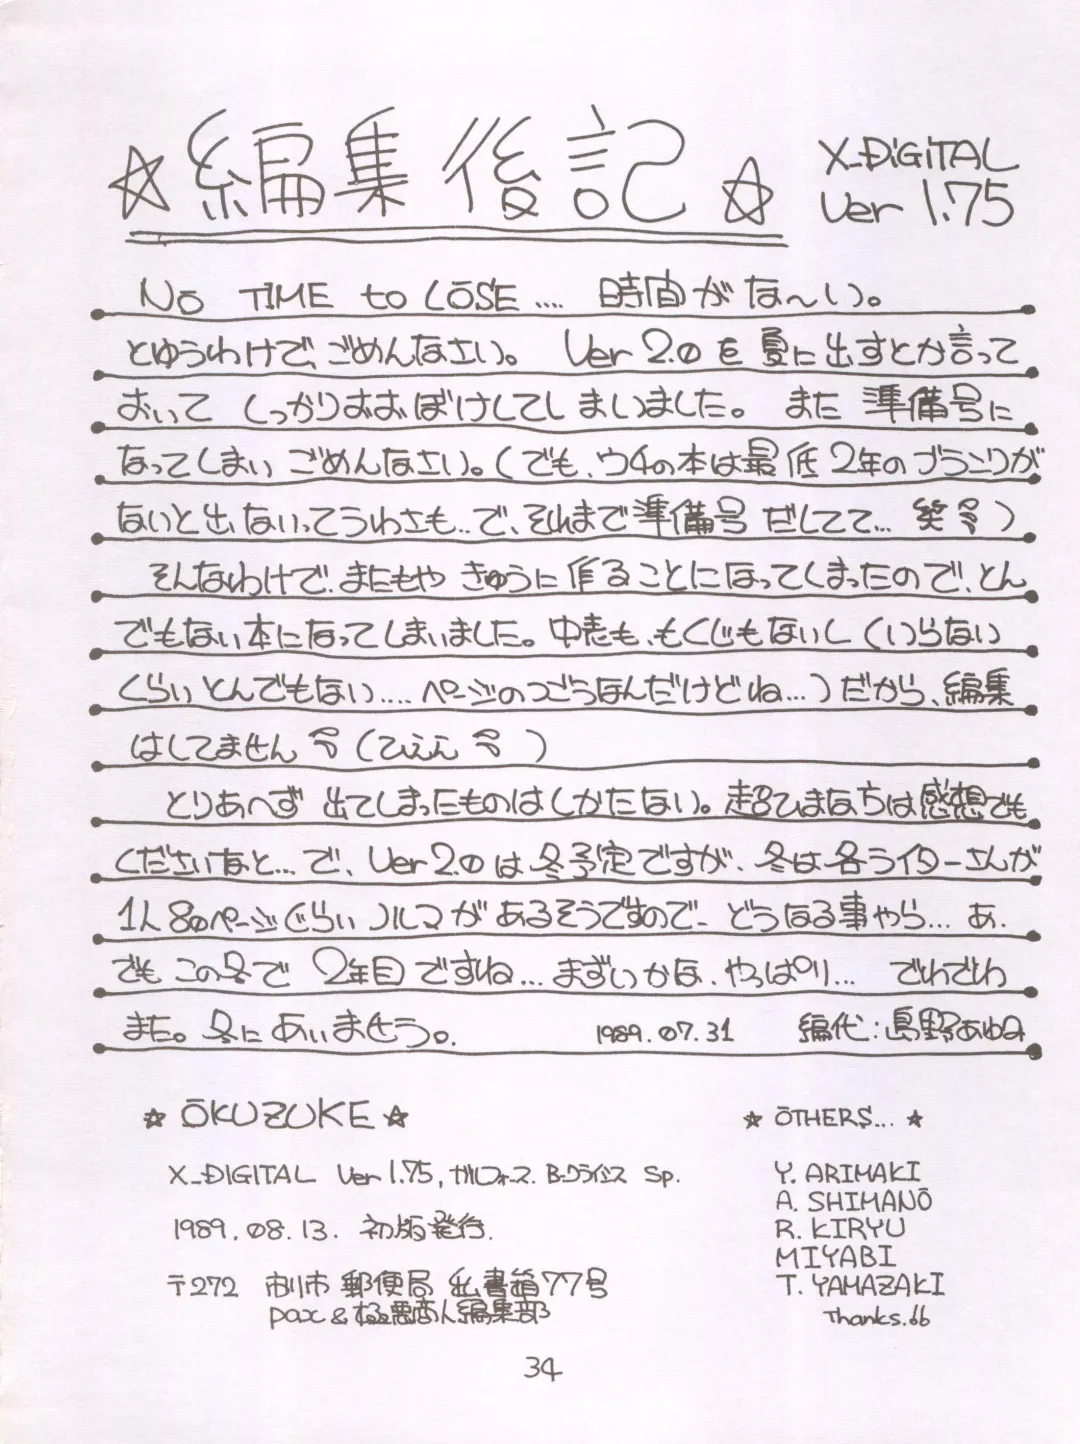 ☆編集後記☆
X_DiGiTAL
Ver 1.75
NO TIME to LOSE.... 時間がな〜い。
とゆうわけで、ごめんなさい。 Ver 2.0 を夏に出すとか言って
おいて しっかりおおぼけしてしまいました。 また 準備号に
なってしまい ごめんなさい。(でも、ウチの本は最低2年のブランクが
ないと出ないってうわさも..で、それまで準備号だしてて... 笑)
そんなわけで、またもや きゅうに作ることになってしまったので、とん
でもない本になってしまいました。中表も、もくじもないし(いらない
くらいとんでもない....ページのつごうなんだけどね...)だから、編集
はしてません(ひええ )
とりあへず 出てしまったものはしかたない。超ひまなちは感想でも
くださいなと...で、Ver2.0は冬予定ですが、冬は各ライターさんが
1人80ページぐらいノルマがあるそうですので、どうなる事やら... あ.
でも この冬で 2年目ですね...まずいかな、やっぱり... でわでわ
また。冬にあいませう。 1989.07.31 編代:島野あゆみ
☆ OKUZUKE ☆
X_DIGITAL Ver 1.75, ガルフォース. B-クライシス Sp.
1989.08.13. 初版発行.
〒272 市川市 郵便局 私書箱77号
pax & 極悪商人編集部
☆ OTHERS... ☆
Y. ARIMAKI
A. SHIMANO
R. KIRYU
MIYABI
T. YAMAZAKI
Thanks.66
34